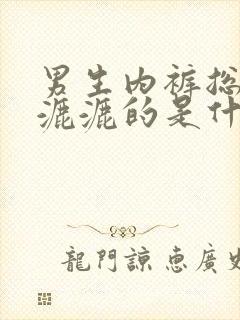 男生内裤总
漉漉的是什
龍門諒惠廣